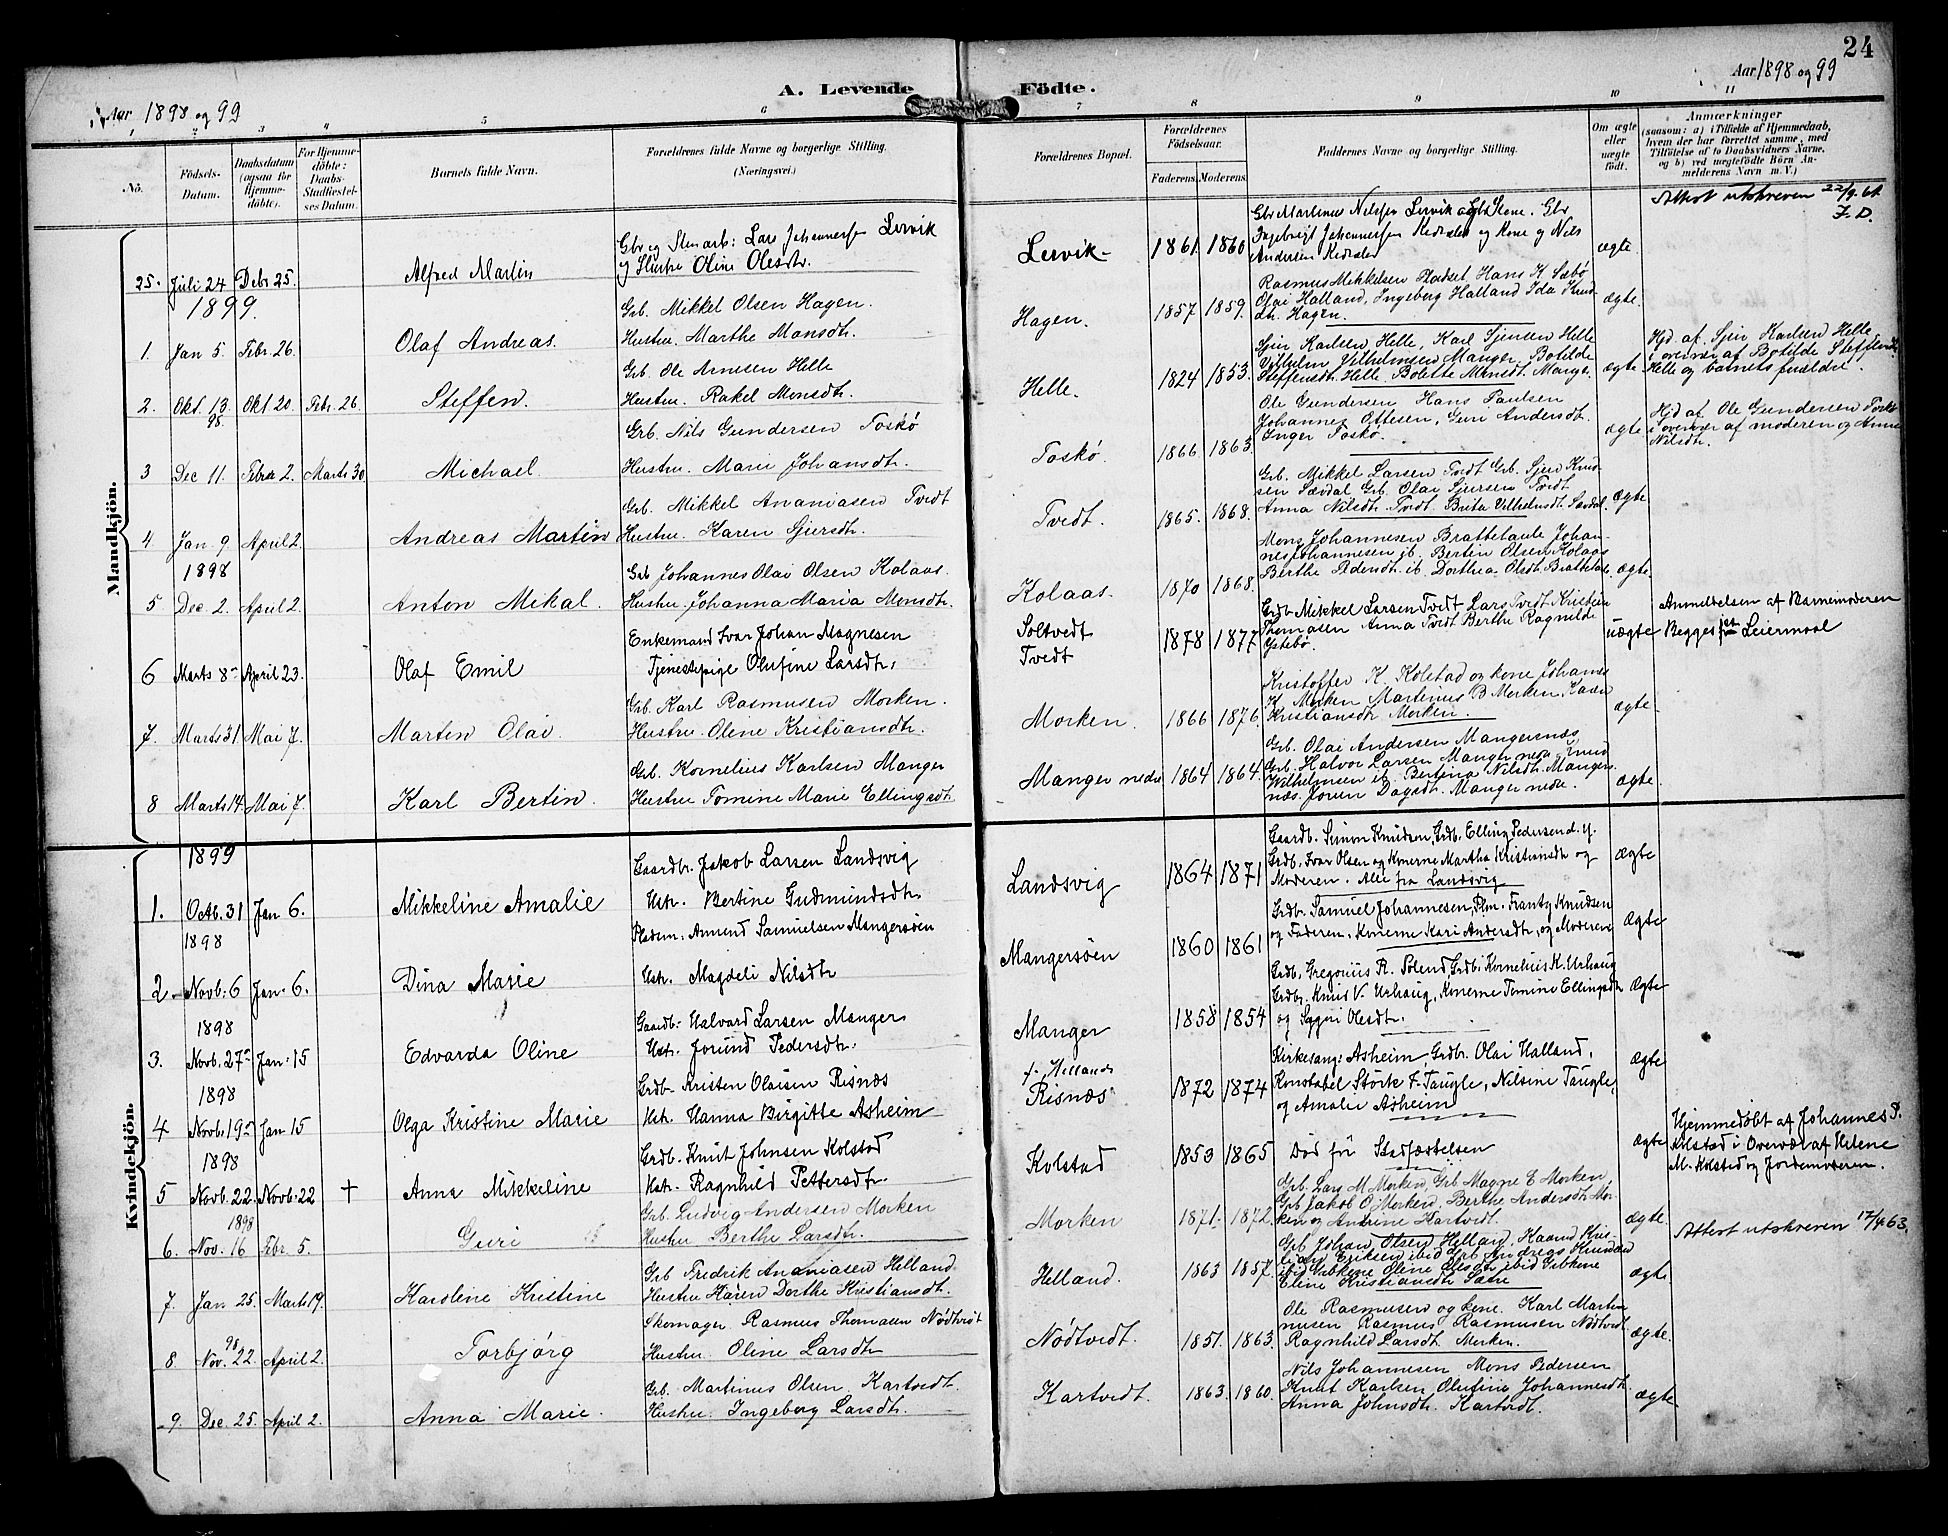 24
Aar 1898 og 99
A. Levende Födte.
Aar 1898 og 99
1 2 3 4 5 6 7 8 9 10 11
No.
Födsels-Datum.
Daabsdatum (ogsaa for Hjemme-döbte).
For Hjemme-döbte: Daabs-Stadfæstel-ses Datum.
Barnets fulde Navn.
Forældrenes fulde Navne og borgerlige Stilling.
(Næringsvei.)
Forældrenes Bopæl.
Forældrenes Födselsaar.
Faderens. Moderens.
Faddernes Navne og borgerlige Stilling.
Om ægte eller uægte födt.
Anmærkninger
(saasom: a) i Tilfælde af Hjemmedaab, hvem der har forrettet samme, med Tilföielse af to Daabsvidners Navne, og b) ved uægtefödte Börn An-melderens Navn m. V.)
Mandkjön.
Attest utskreven 22/9.61. Z.D.
25. Juli 24 Debr 25. Alfred Martin
Gbr og Stenarb: Lars Johannesen Lervik
og Hustru Oline Olesdtr.
Lervik 1861 1860
Gbr Martinus Nilssen Lervik og Kone. Gbr
Ingebrigt Johannessen og Kone og Nils
Andersen
ægte
1899.
1. Jan 5. Febr. 26. Olaf Andreas.
Grb. Mikkel Olsen Hagen.
Hustru. Marthe Monsdtr.
Hagen. 1857 1859.
Rasmus Mikkelsen Hans K. Sæbø
Olai Halland, Ingeborg Halland Ida Knud-
dtr. Hagen.
ægte.
2. Okt. 13. 98. Okt 20. Febr. 26 Steffen.
Grb. Ole Arnesen Helle
Hustru. Rakel Monsdtr.
Helle. 1824 1853.
Sjur Karlsen Helle, Karl Sjursen Helle
Vilhelm Vilhelmsen Manger, Botilde
Steffensdtr. Helle. Bolette Monsdtr. Manger.
ægte.
Hjd af. Sjur Karlsen Helle
i overvær af Botilde Steffensdtr
Helle og barnets forældre.
3 Dec 11. Febr 2. Marts 30 Michael.
Grb. Nils Gundersen Toskø
Hustru. Marie Johansdtr.
Toskø. 1866 1863
Ole Gundersen Hans Paulsen
Johannes Ottesen, Guri Andersdtr.
Inger Toskø.
ægte
Hjd af. Ole Gundersen Toskø
i overvær af moderen og Anne
Nilsdtr.
4 Jan 9 April 2. Andreas Martin
Grb. Mikkel Ananiasen Tvedt
Hustru. Karen Sjursdtr.
Tvedt. 1865. 1868.
Grb. Mikkel Larsen Tvedt Grb. Sjur Knud-
sen Sævdal Grb. Olai Sjursen Tvedt
Anna Nilsdtr. Tvedt. Brita Vilhelmsdtr. Sævdal.
ægte.
1898
5 Dec. 2. April 2. Anton Mikal.
Grb Johannes Olai Olsen Kolaas.
Hustru. Johanna Maria Monsdtr.
Kolaas. 1870 1868.
Mons Johannesen Brattetaule Johan-
nes Johannesen ib. Bertin Olsen Kolaas
Berthe Pedersdtr. ib. Dorthea Olsdtr. Brattetaule.
ægte.
6 Marts 8 April 23. Olaf Emil
Enkemand Ivar Johan Magnesen
Tjenestepige Olufine Larsdtr.
Soltvedt
Tvedt
1878 1877
Grdb. Mikkel Larsen Tvedt Lars Tvedt Kristein
Thomasen Anna Tvedt Berthe Ragnilde
Ystebø.
uægte
Anmeldelsen af Barnemoderen
Begges 1ste Leiermaal
7. Marts 31 Mai 7. Martin Olai.
Grb. Karl Rasmusen Morken.
Hustru. Oline Kristiansdtr.
Morken. 1866 1876.
Kristoffer K. Kolstad og kone Johannes
K. Morken Martinus B. Morken, Karen
Kristiansdtr. Morken.
ægte.
8 Marts 14. Mai 7. Karl Bertin.
Grb. Kornelius Karlsen Manger
Hustru Tomine Marie Ellingsdtr.
Manger nedre 1864 1864.
Grb. Olai Andersen Mangersnæs,
Grb. Halvor Larsen Manger nedre Knud
Wilhelmsen ib. Bertina Nilsdtr. Mangers-
næs. Joren Dagsdtr. Manger nedre.
ægte.
Kvindekjön.
1899
1. Octb. 31 1898 Jan 6. Mikkeline Amalie
Gaardbr. Jakob Larsen Landsvig
Hstr. Bertine Gudmundsdtr.
Landsvig 1864 1871
Gaardb. Simon Knudsen, Grdb. Elling Pedersen d. y.
Grdb. Ivar Olsen og Konerne Martha Kristiansdtr og
Moderen. Alle fra Landsvig
ægte
2. Novb. 6 Jan. 6. Dina Marie
Pladsm. Amund Samuelsen Mangersøen
Hstr. Magdeli Nilsdtr
Mangersøen 1860 1861
Grdb. Samuel Johannesen, Plm. Frantz Knudsen
og Faderen, Konerne Kari Andersdtr, og Moderene
Ægte
1898
3. Novb. 27. Jan. 15 Edvarda Oline
Gaardb: Halvard Larsen Manger
Hstr. Jorund Pedersdtr.
Manger 1858 1854
Grdb, Gregorius R. Soleud, Grdb. Kornelius K. Urhaug
Grdb. Knud V. Urhaug, Konerne Tomine Ellingsdtr
og Siggri Olesdtr.
Ægte
1898
4 Novb. 19 Jan 15 Olga Kristine Marie
Grdb. Kristen Olaisen Risnæs
Hstr. Hanna Birgitte Asheim
f. Hellands
Risnæs 1872 1874
Kirkesang: Asheim, Grdbr. Olai Halland,
Konstabel Størk F. Taugle, Nilsine Taugle,
og Amalie Asheim
Ægte
1898
5 Novb. 22. Novb. 22 † Anna Mikkeline
Grdb. Knut Johnsen Kolstad
Hstr. Ragnhild Pettersdtr.
Kolstad 1853 1865
Død før Stadfæstelsen
Ægte
Hjemmedøbt af Johannes P.
Kolstad i Overvær af Helene
M. Kolstad og Jordemoderen.
1898
6. Nov. 16 Febr. 5. Guri
Grb. Ludvig Andersen Morken
Hustru Berthe Larsdtr.
Morken 1871. 1872.
Grb. Lars M Morken, Grb Magne E Morken,
Grb Jakob O. Morken, Berthe Andersdtr. Mor-
ken og Andrine Kartvedt.
Ægte
Attest utskreven 17/4.63.
7. Jan 25. Marts 19. Karoline Kristine
Grb Fredrik Ananiasen Helland.
Hustru Karen Dorthe Kristiansdtr.
Helland. 1863 1857.
Grb Johan Olsen Helland,
ibid Gbkone Oline Olsdtr ibid Gbkone
Eline Kristiansdtr. Sætre
ægte
8 98 Nov. 22 April 2. Torbjørg
Skomager. Rasmus Thomasen Nødtvedt
Hustru. Oline Larsdtr
Nødtvedt. 1851. 1863.
Ole Rasmusen og kone. Karl Martin
Rasmus Rasmusen Nødtvedt
Ragnhild Larsdtr. Morken.
ægte.
9. Dec. 25. April 2. Anna Marie.
Grb. Martinus Olsen Kartvedt.
Hustru. Ingeborg Larsdtr.
Kartvedt. 1863. 1860.
Nils Johannesen Mons Pedersen
Knut Karlsen Olufine Johannesdtr.
Anna Johnsdtr. Kartvedt.
ægte.